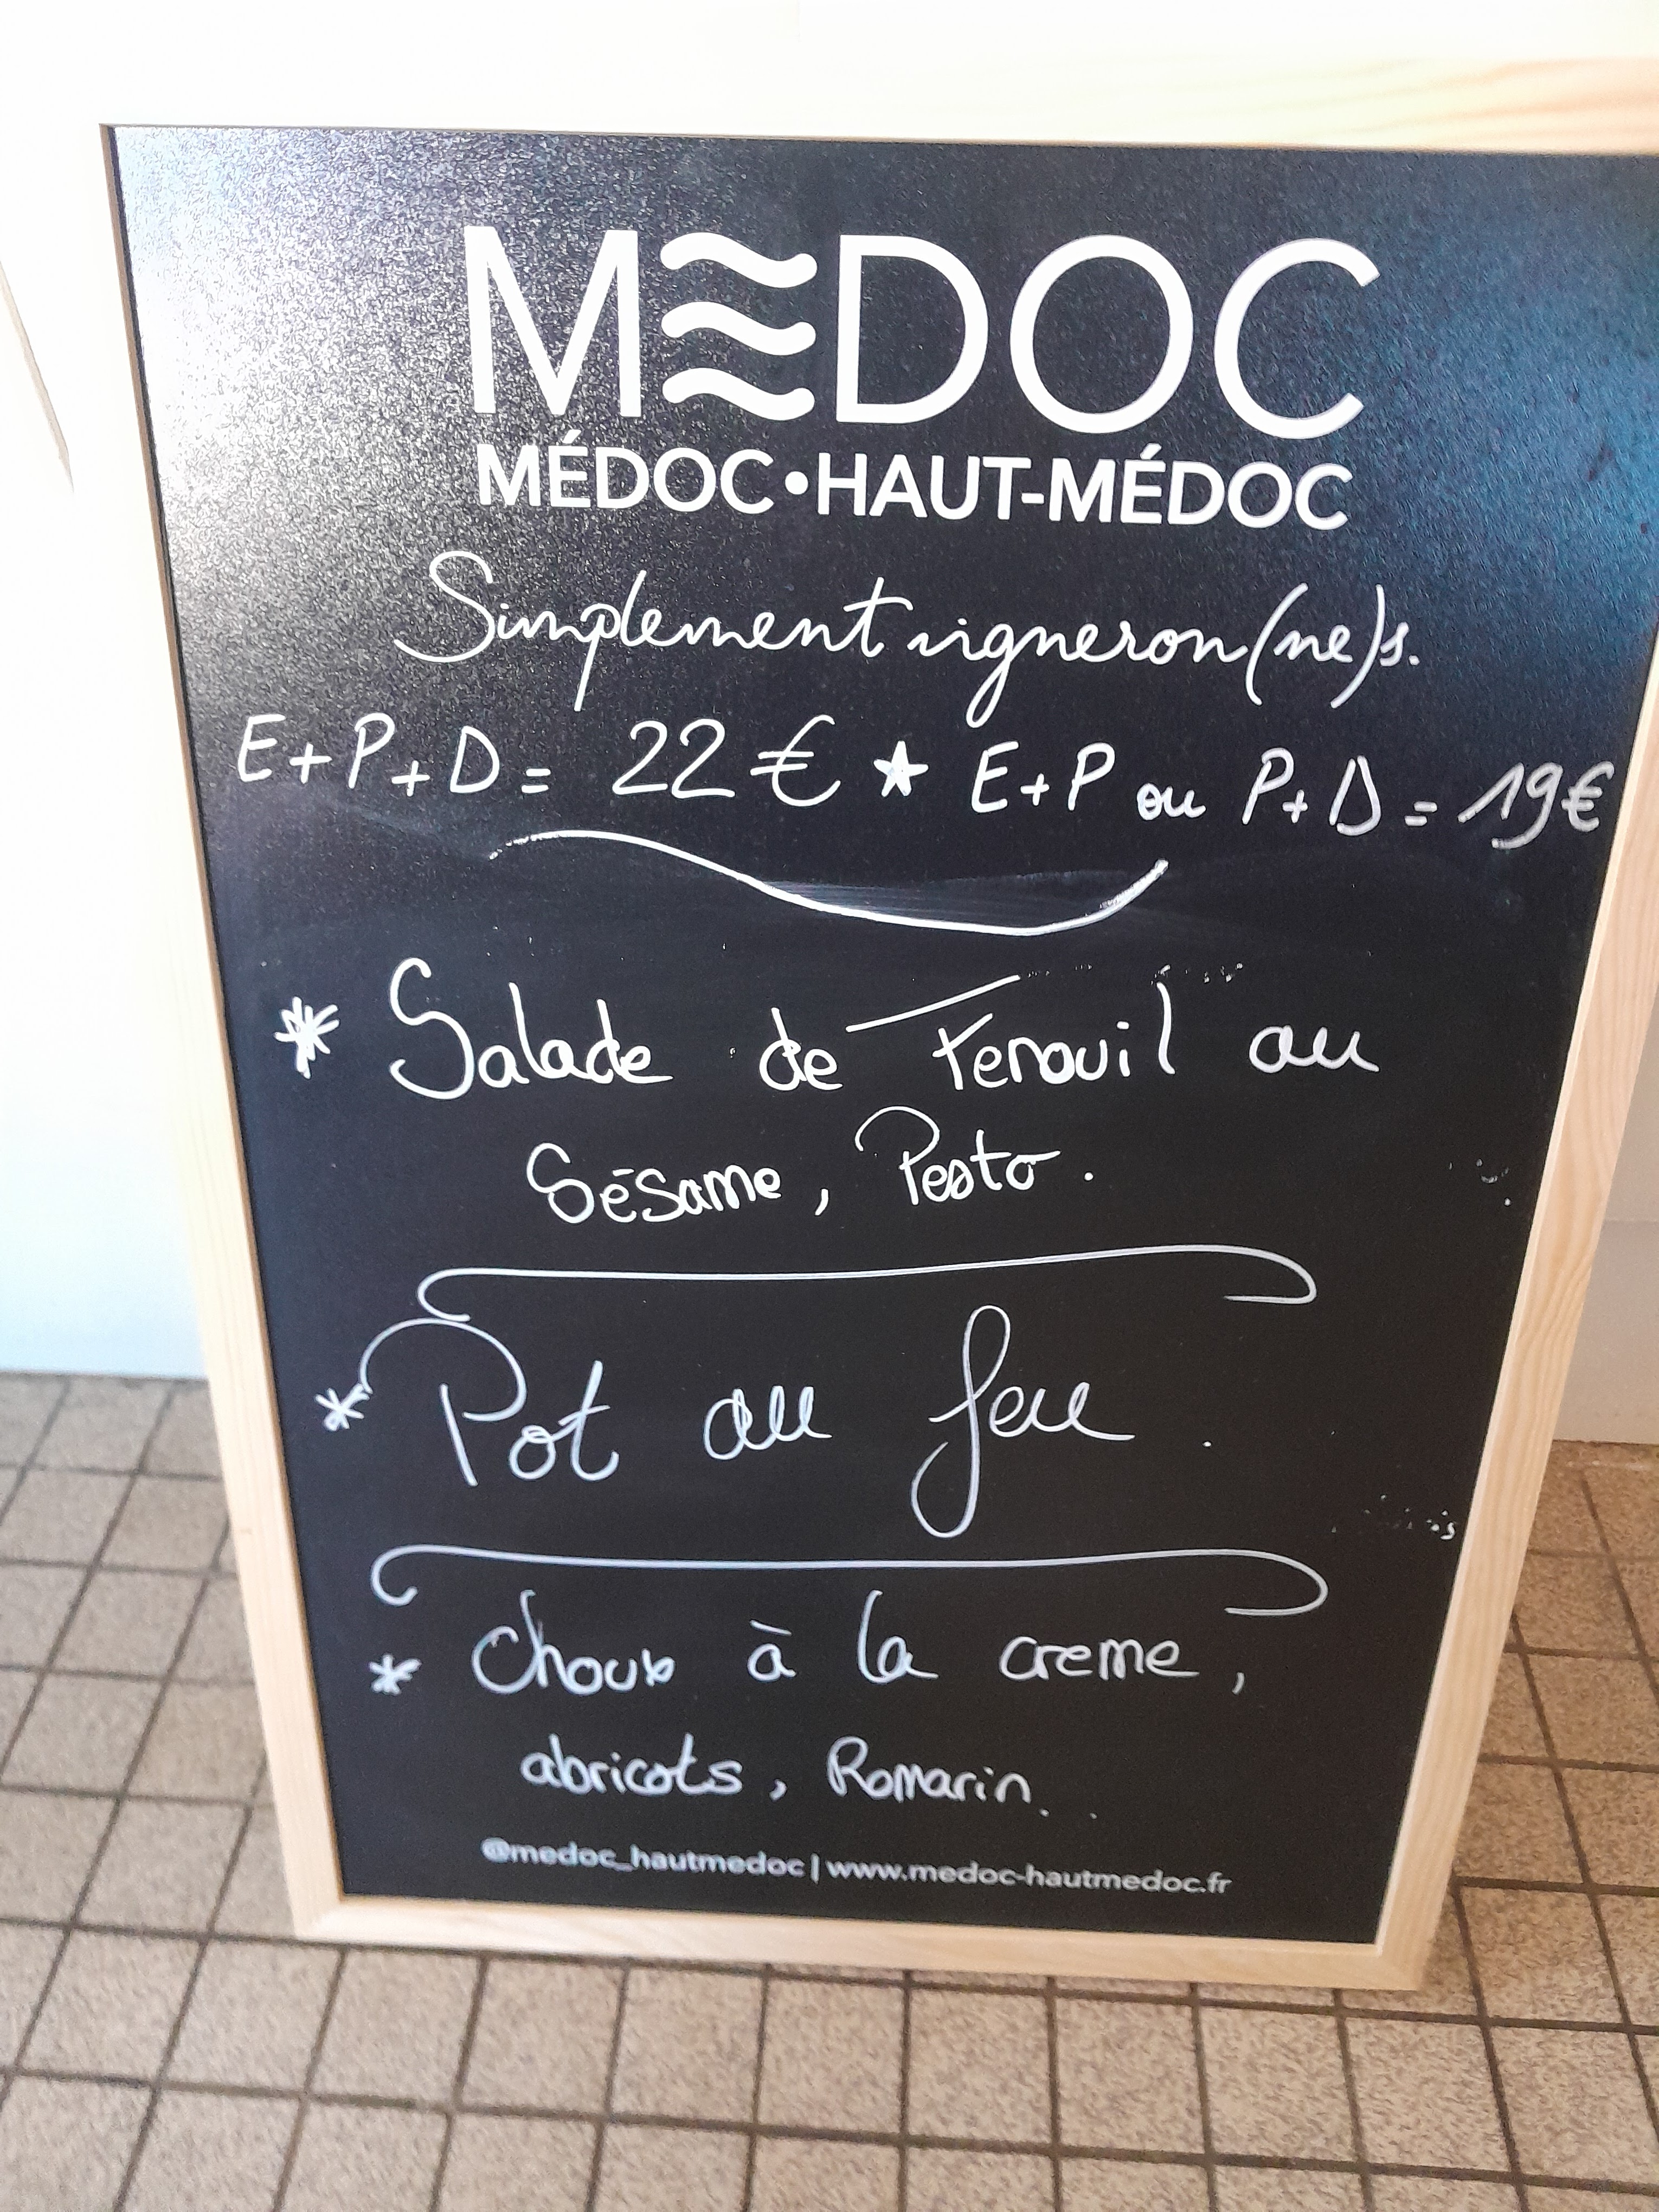 MEDOC
MÉDOC•HAUT-MÉDOC
Simplement vigneron(ne)s.
E+P+D= 22 € ★ E+P ou P+D = 19€
* Salade de Fenouil au
Sésame, Pesto.
* Pot au feu.
* Choux à la creme,
abricots, Romarin.
@medoc_hautmedoc | www.medoc-hautmedoc.fr